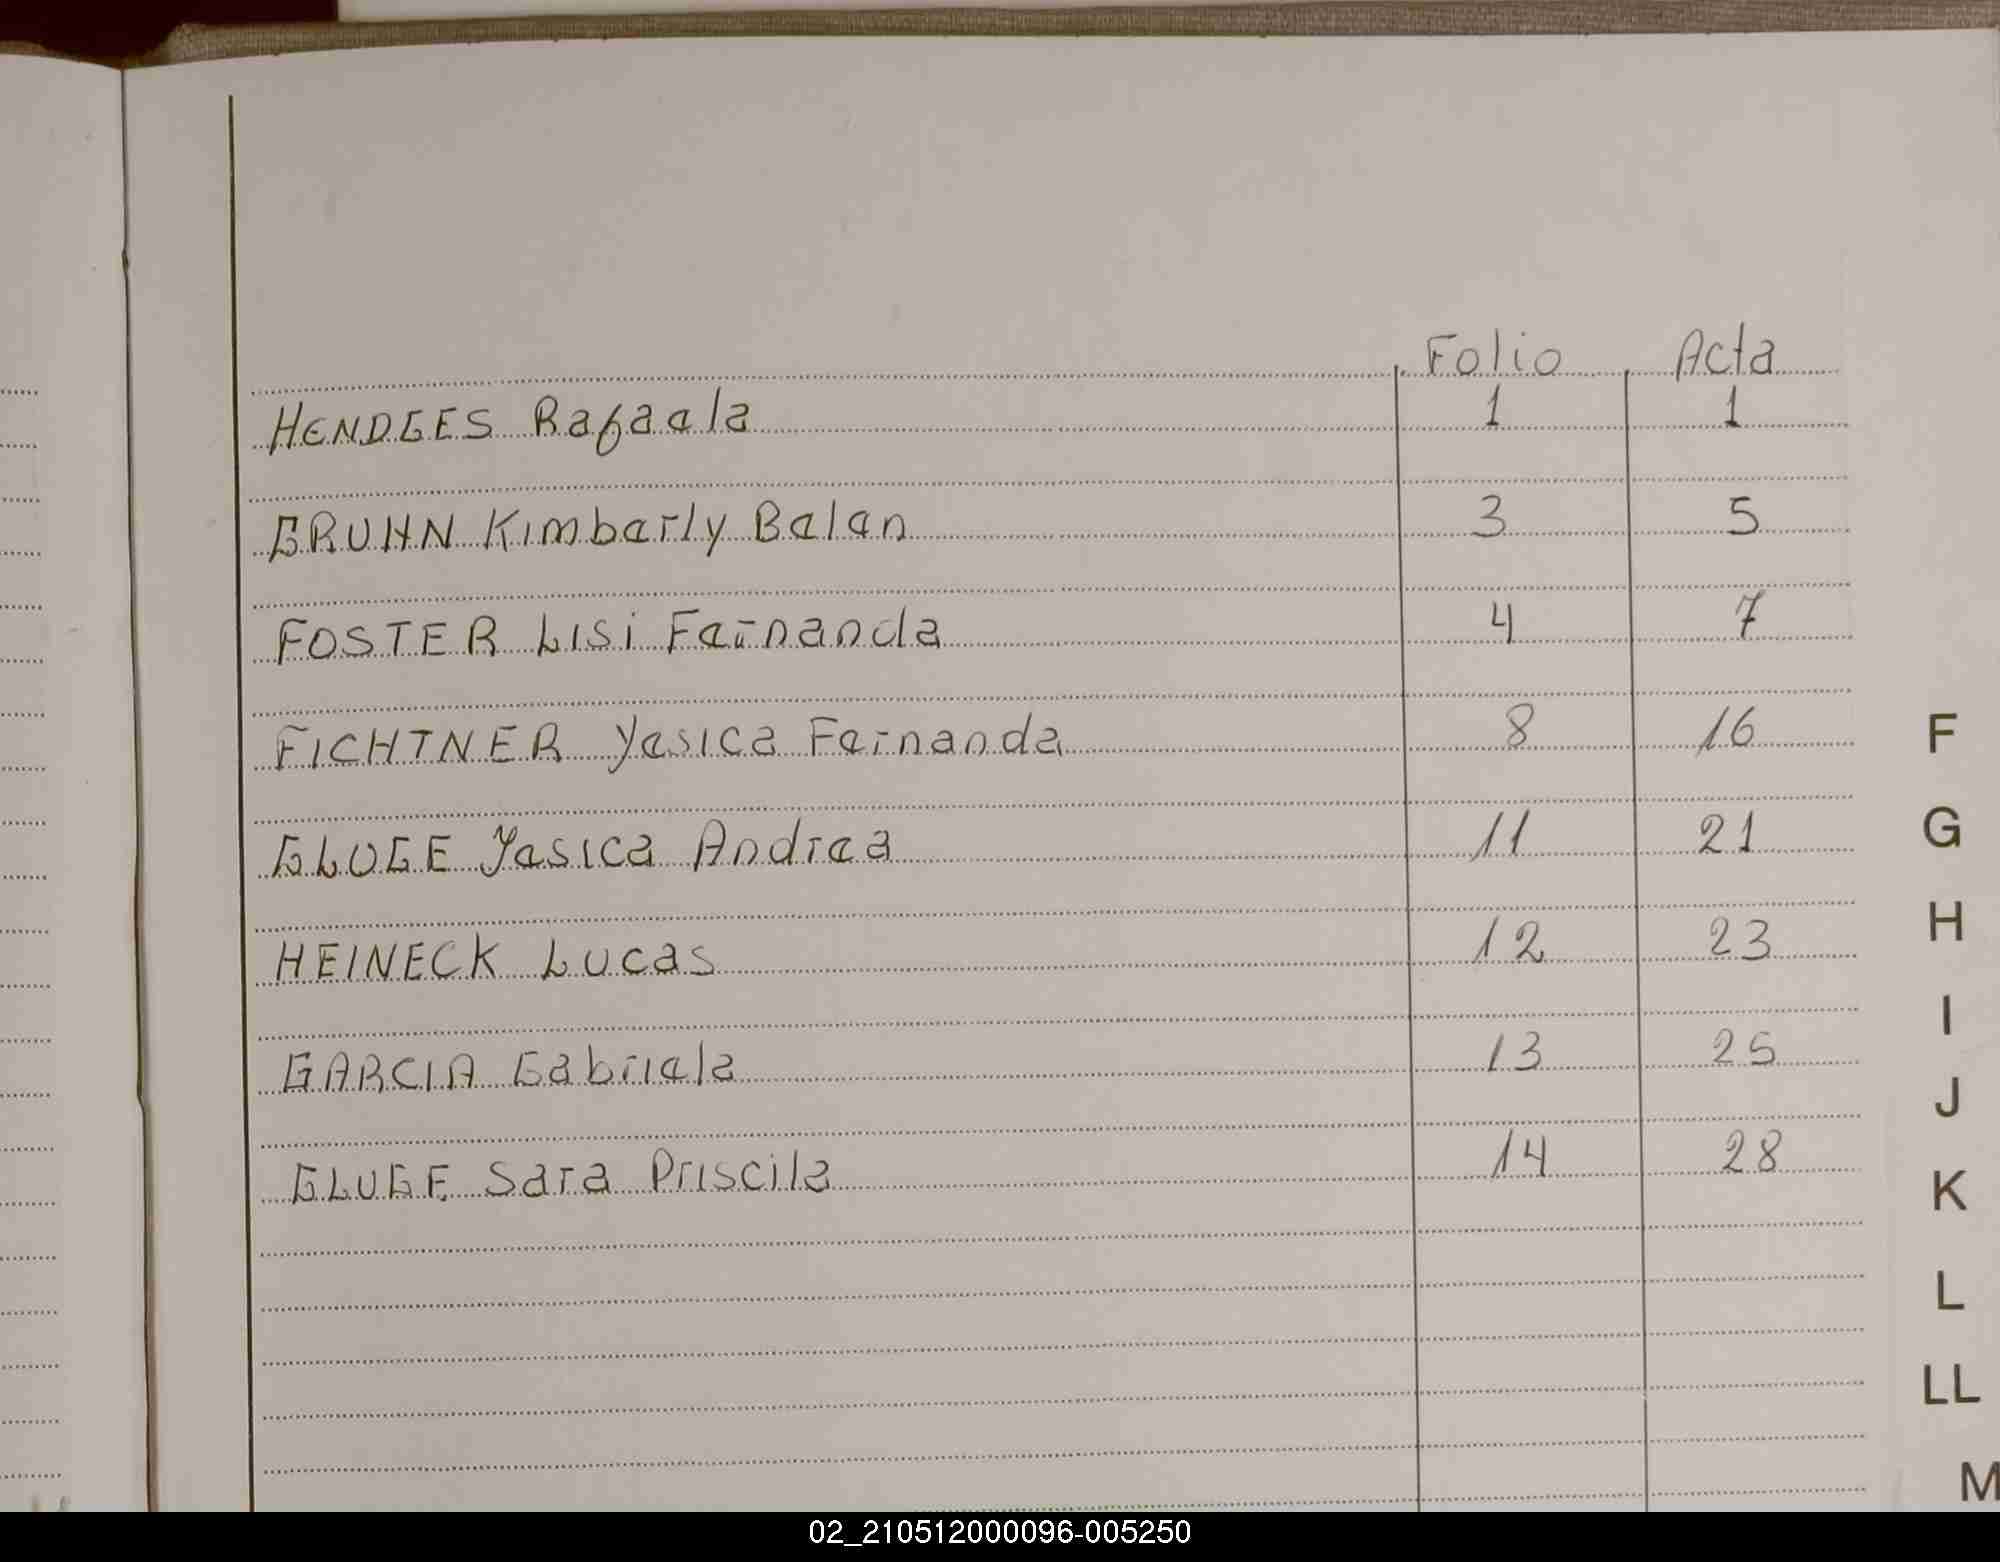 Folio Acta
HENDGES Rafaela 1 1
GRUHN Kimberly Belen 3 5
FOSTER Lisi Fernanda 4 7
FICHTNER Yesica Fernanda 8 16
F
GLUGE Yesica Andrea 11 21
G
HEINECK Lucas 12 23
H
I
GARCIA Gabriela 13 25
J
GLUGE Sara Priscila 14 28
K
L
LL
M
02_210512000096-005250